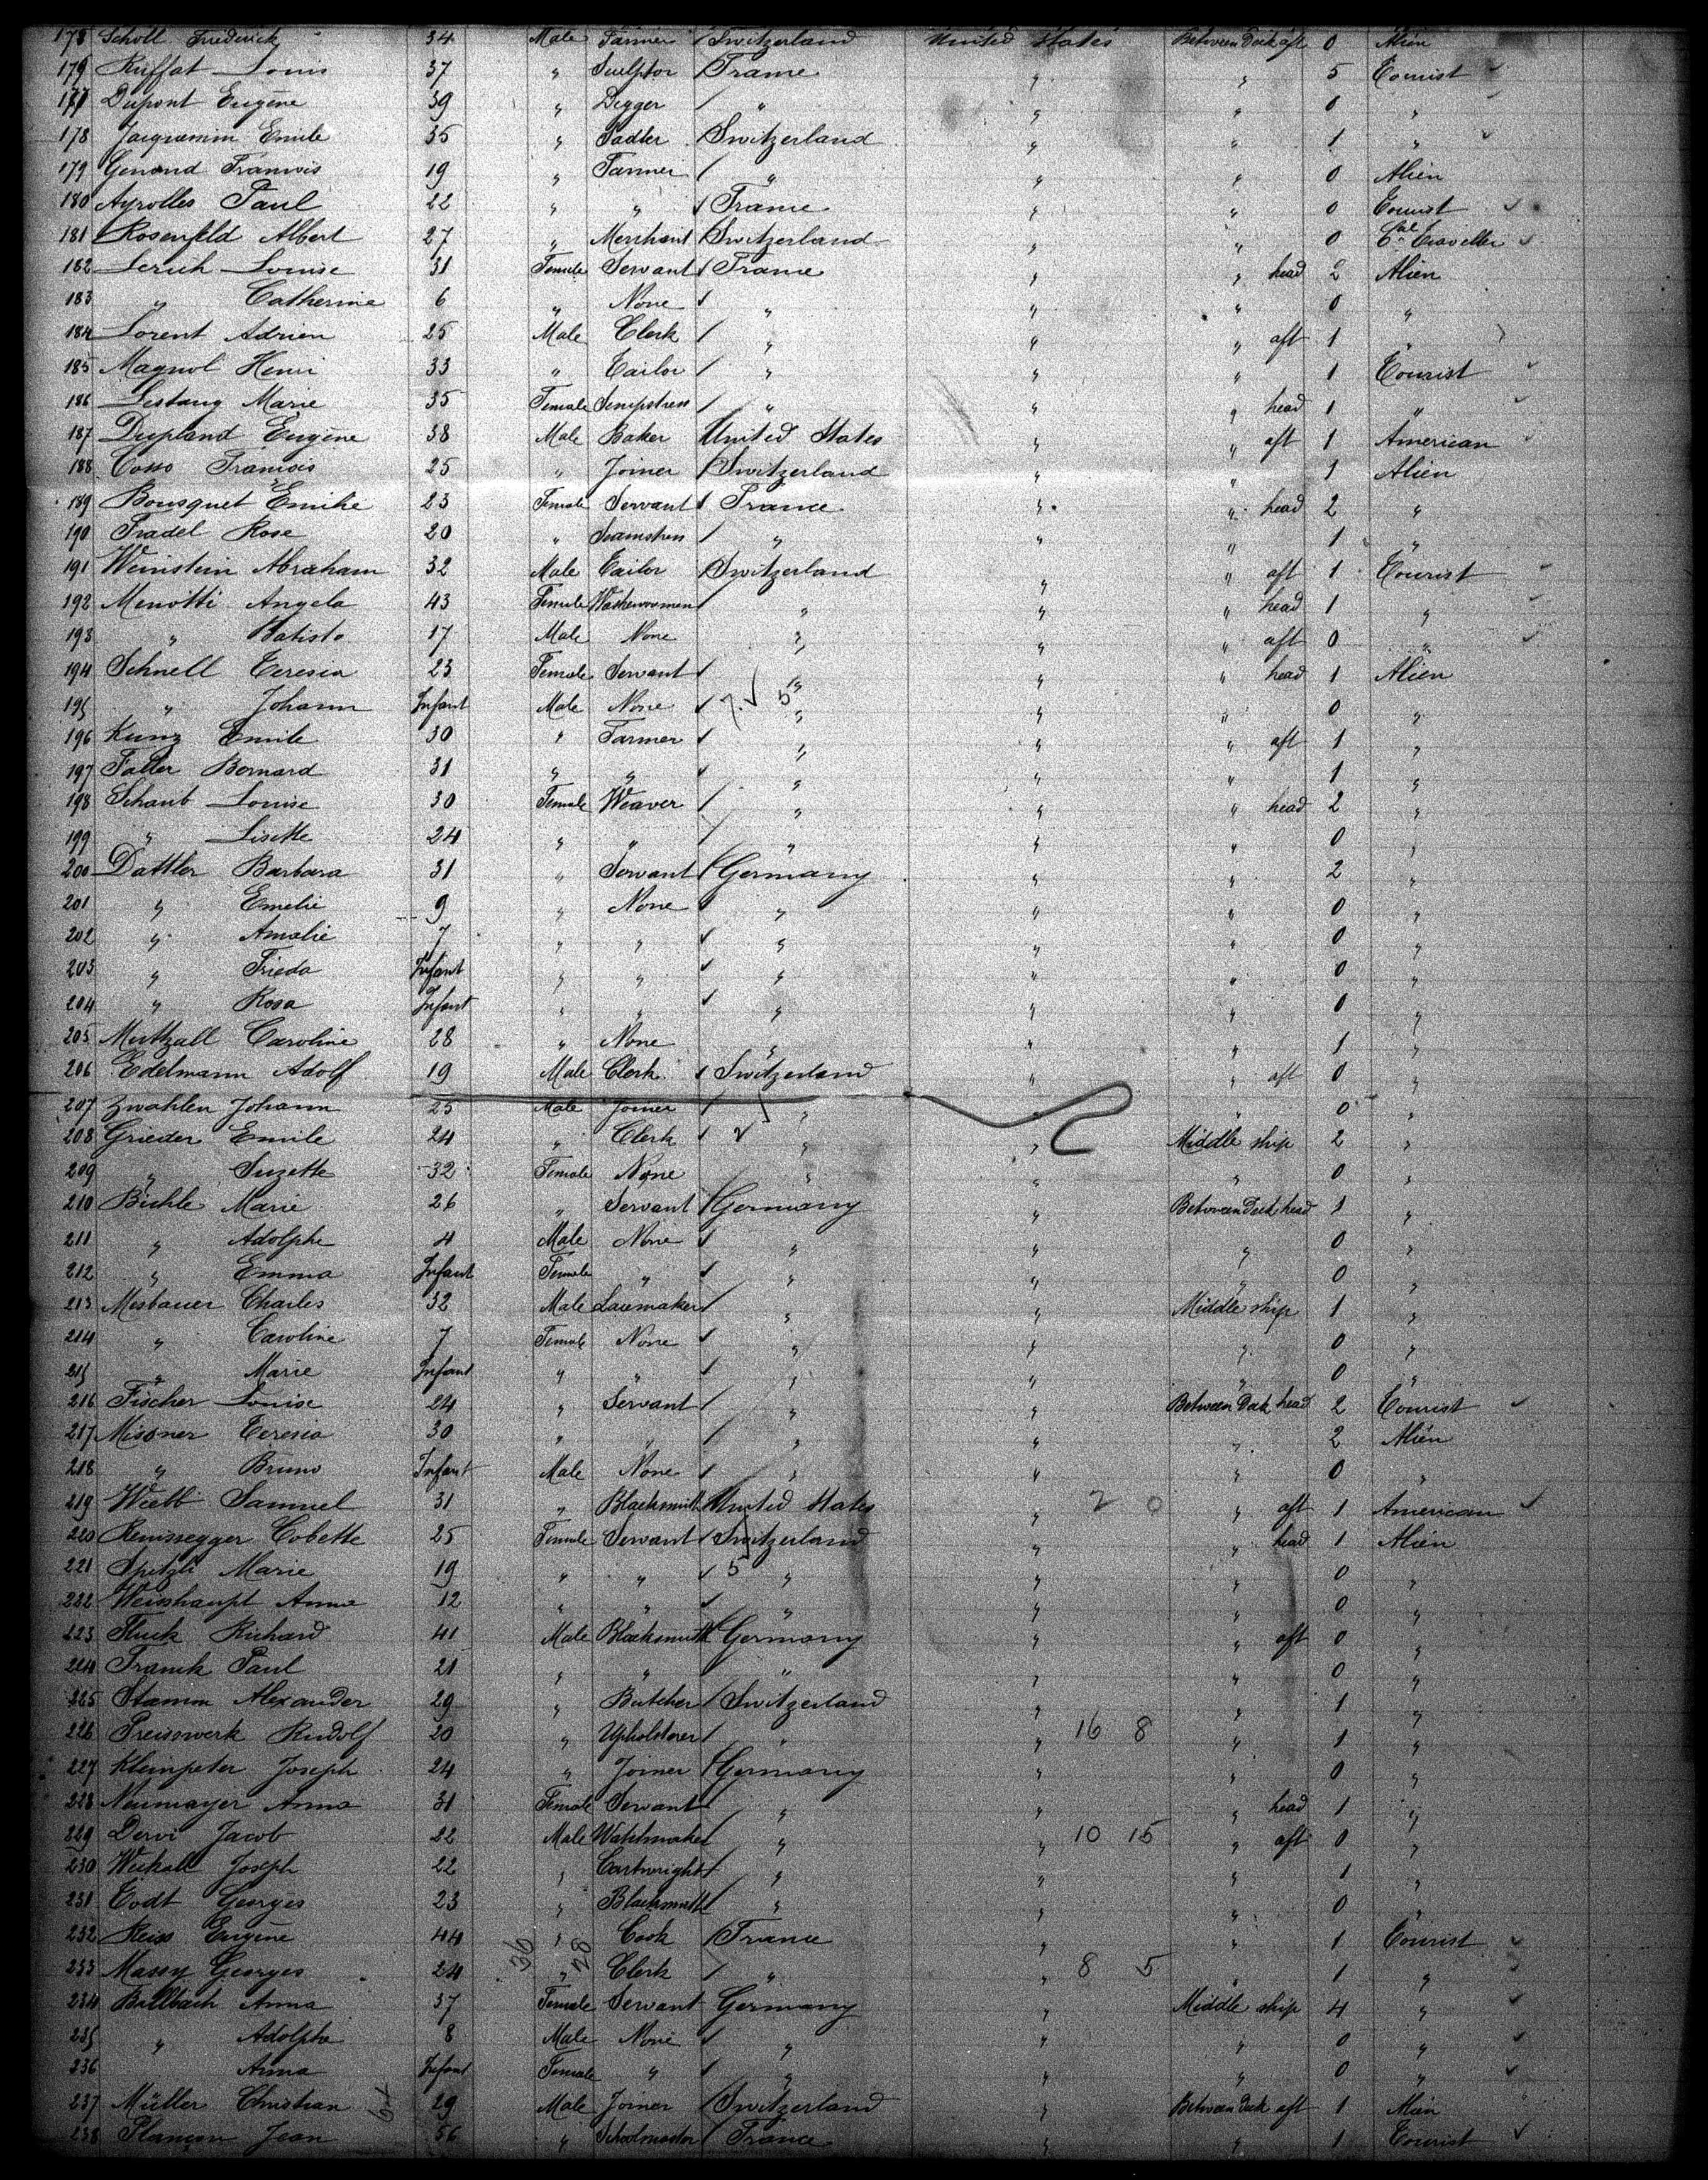 178 Scholl Frederick 34 Male Farmer / Switzerland United States Between Deck aft 0 Alien
179 Ruffat Louis 37 " Sculptor / France " " 5 Tourist
177 Dupont Eugène 39 " Digger / " " " 0 "
178 Jacquemin Emile 35 " Sadler / Switzerland " " 1 "
179 Genoud Francois 19 " Farmer / " " " 0 Alien
180 Ayrolles Paul 22 " " / France " " 0 Tourist
181 Rosenfeld Albert 27 " Merchant / Switzerland " " 0 Cial Traveller
182 Lerich Louise 31 Female Servant / France " " head 2 Alien
183 " Catherine 6 " None / " " " 0 "
184 Lorent Adrien 25 Male Clerk / " " " aft 1 "
185 Magnol Henri 33 " Tailor / " " " 1 Tourist
186 Lestang Marie 35 Female Sempstress / " " " head 1 "
187 Dupland Eugène 38 Male Baker United States " " aft 1 American
188 Cosso Francois 25 " Joiner / Switzerland " " 1 Alien
189 Bousquet Emilie 23 Female Servant / France " " head 2 "
190 Fradel Rose 20 " Seamstress / " " " 1 "
191 Weinstein Abraham 32 Male Tailor / Switzerland " " aft 1 Tourist
192 Menotti Angela 43 Female Washerwoman / " " " head 1 "
193 " Batisto 17 Male None " " " aft 0 "
194 Schnell Teresia 23 Female Servant / " " " head 1 Alien
195 " Johann Infant Male None / 7 5 " " " 0 "
196 Kunz Emile 30 " Farmer / " " " aft 1 "
197 Faller Bernard 31 " " / " " " 1 "
198 Schaub Louise 30 Female Weaver / " " " head 2 "
199 " Lisette 24 " " / " " " 0 "
200 Dattler Barbara 31 " Servant / Germany " " 2 "
201 " Emelie 9 " None / " " " 0 "
202 " Amalie 7 " " / " " " 0 "
203 " Frieda Infant " " / " " " 0 "
204 " Rosa Infant " " / " " " 0 "
205 Caroline 28 " None " " " 1 "
206 Edelmann Adolf 19 Male Clerk / Switzerland " " aft 0 "
207 Zwahlen Johann 25 Male Joiner / " " " 0 "
208 Grieder Emile 24 " Clerk / " " Middle ship 2 "
209 " Suzette 32 Female None " " " 0 "
210 Bichle Marie 26 " Servant / Germany " Between Deck head 1 "
211 " Adolphe 4 Male None / " " " 0 "
212 " Emma Infant Female " / " " " 0 "
213 Mesbauer Charles 32 Male Lacemaker / " " Middle ship 1 "
214 " Caroline 7 Female None / " " " 0 "
215 " Marie Infant " " / " " " 0 "
216 Fischer Louise 24 " Servant / " " Between Deck head 2 Tourist
217 Misoner Teresia 30 " " / " " " 2 Alien
218 " Bruno Infant Male None / " " " 0 "
219 Samuel 31 " Blacksmith United States " 2 0 " aft 1 American
220 Renssegger Cobette 25 Female Servant / Switzerland " " head 1 Alien
221 Spitzli Marie 19 " " / 5 " " " 0 "
222 Weisshaupt Anna 12 " " / " " " 0 "
223 Fluck Richard 41 Male Blacksmith Germany " " aft 0 "
224 Franck Paul 21 " " " " " 0 "
225 Stamm Alexander 29 " Butcher / Switzerland " " 1 "
226 Preisswerk Rudolf 20 " Upholsterer / " " 16 8 " 1 "
227 Kleinpeter Joseph 24 " Joiner / Germany " " 0 "
228 Neumayer Anna 31 Female Servant / " " " head 1 "
229 Dervi Jacob 22 Male Watchmaker / " " 10 15 " aft 0 "
230 Joseph 22 " Cartwright / " " " 1 "
231 Todt Georges 23 " Blacksmith / " " " 0 "
232 Reiss Eugène 44 36 " 28 Cook / France " " 1 Tourist
233 Massy Georges 24 " Clerk / " " 8 5 " 1 "
234 Ballbach Anna 37 Female Servant Germany " Middle ship 4 "
235 " Adolphe 8 Male None / " " " 0 "
236 Anna Infant Female " / " " " 0 "
237 Müller Christian 29 Male Joiner / Switzerland " Between Deck aft 1 Alien
238 Plançon Jean 56 " Schoolmaster / France " " 1 Tourist